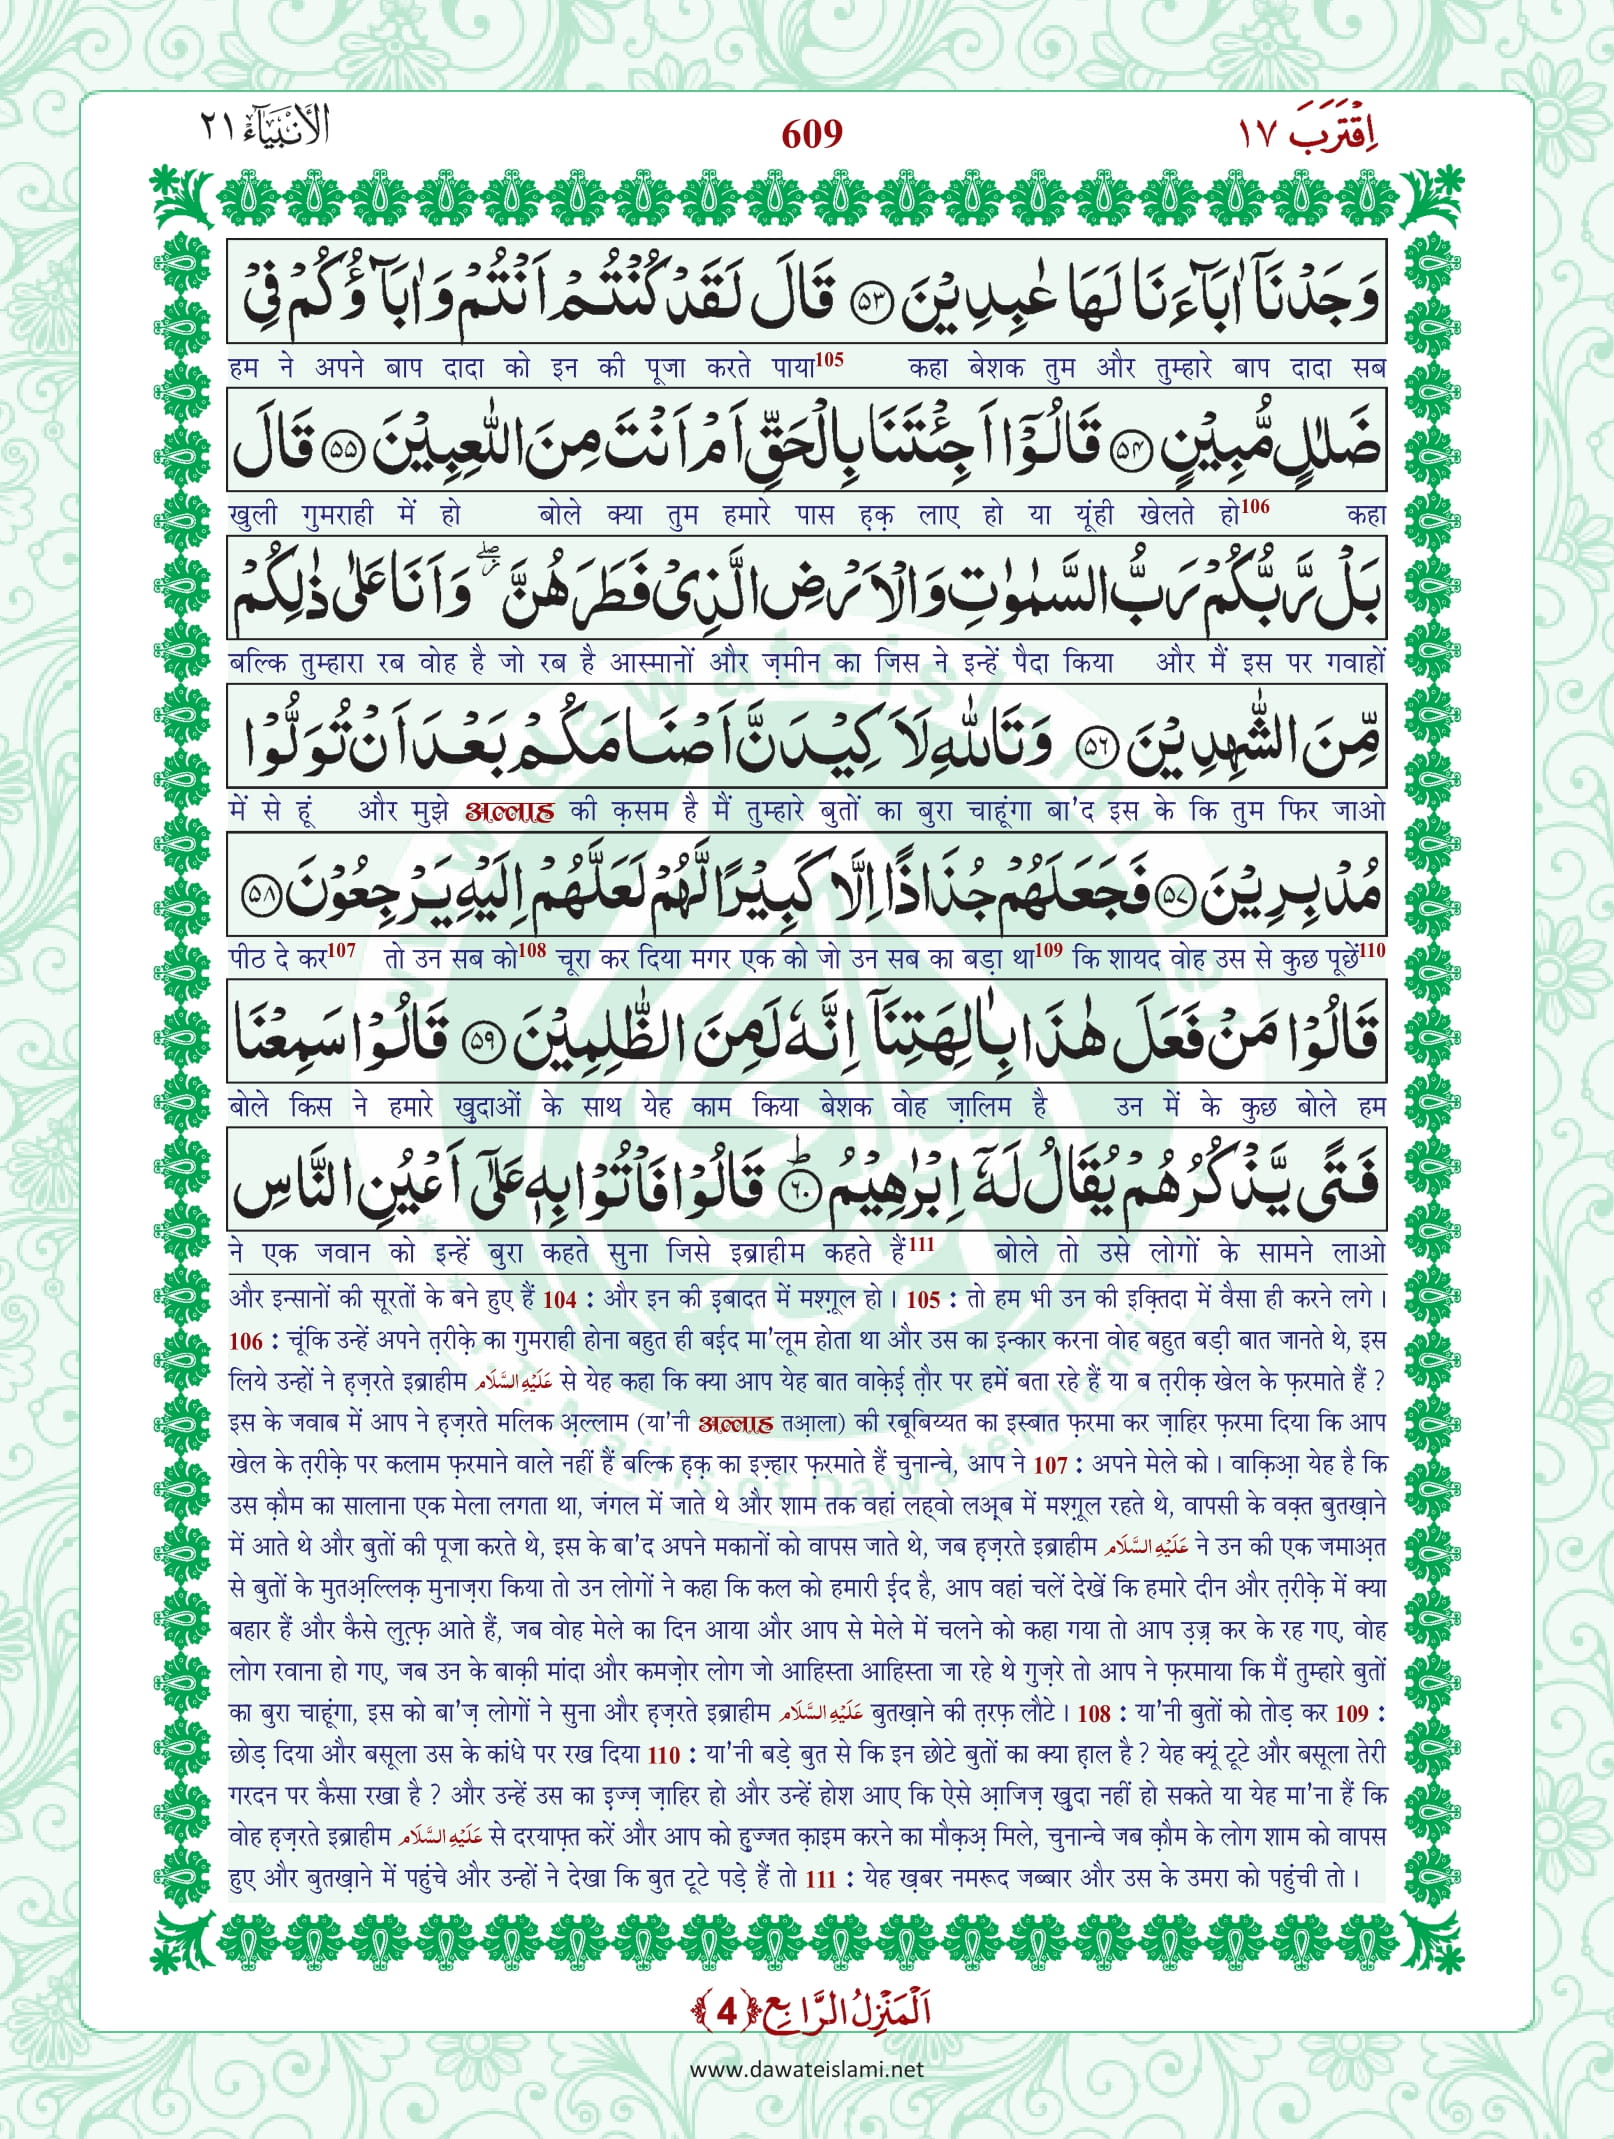 اِقْتَرَبَ ١٧
609
الْاَنْۢبِيَآء ٢١
وَجَدْنَاۤ اٰبَآءَنَا لَهَا عٰبِدِیْنَ ۝۵۳ قَالَ لَقَدْ كُنْتُمْ اَنْتُمْ وَ اٰبَآؤُكُمْ فِیْ
हम ने अपने बाप दादा को इन की पूजा करते पाया105 कहा बेशक तुम और तुम्हारे बाप दादा सब
ضَلٰلٍ مُّبِیْنٍ ۝۵۴ قَالُوْۤا اَجِئْتَنَا بِالْحَقِّ اَمْ اَنْتَ مِنَ اللّٰعِبِیْنَ ۝۵۵ قَالَ
खुली गुमराही में हो बोले क्या तुम हमारे पास ह़क़ लाए हो या यूंही खेलते हो106 कहा
بَلْ رَّبُّكُمْ رَبُّ السَّمٰوٰتِ وَ الْاَرْضِ الَّذِیْ فَطَرَهُنَّ ۖ٘ وَ اَنَا عَلٰى ذٰلِكُمْ
बल्कि तुम्हारा रब वोह है जो रब है आस्मानों और ज़मीन का जिस ने इन्हें पैदा किया और मैं इस पर गवाहों
مِّنَ الشّٰهِدِیْنَ ۝۵۶ وَ تَاللّٰهِ لَاَكِیْدَنَّ اَصْنَامَكُمْ بَعْدَ اَنْ تُوَلُّوْا
में से हूं और मुझे अल्लाह की क़सम है मैं तुम्हारे बुतों का बुरा चाहूंगा बा'द इस के कि तुम फिर जाओ
مُدْبِرِیْنَ ۝۵۷ فَجَعَلَهُمْ جُذٰذًا اِلَّا كَبِیْرًا لَّهُمْ لَعَلَّهُمْ اِلَیْهِ یَرْجِعُوْنَ ۝۵۸
पीठ दे कर107 तो उन सब को108 चूरा कर दिया मगर एक को जो उन सब का बड़ा था109 कि शायद वोह उस से कुछ पूछें110
قَالُوْا مَنْ فَعَلَ هٰذَا بِاٰلِهَتِنَاۤ اِنَّهٗ لَمِنَ الظّٰلِمِیْنَ ۝۵۹ قَالُوْا سَمِعْنَا
बोले किस ने हमारे ख़ुदाओं के साथ येह काम किया बेशक वोह ज़ालिम है उन में के कुछ बोले हम
فَتًى یَّذْكُرُهُمْ یُقَالُ لَهٗۤ اِبْرٰهِیْمُ ؕ۝۶۰ قَالُوْا فَاْتُوْا بِهٖ عَلٰۤى اَعْیُنِ النَّاسِ
ने एक जवान को इन्हें बुरा कहते सुना जिसे इब्राहीम कहते हैं111 बोले तो उसे लोगों के सामने लाओ
और इन्सानों की सूरतों के बने हुए हैं 104 : और इन की इबादत में मश्ग़ूल हो । 105 : तो हम भी उन की इक़्तिदा में वैसा ही करने लगे ।
106 : चूंकि उन्हें अपने त़रीक़े का गुमराही होना बहुत ही बईद मा'लूम होता था और उस का इन्कार करना वोह बहुत बड़ी बात जानते थे, इस
लिये उन्हों ने ह़ज़रते इब्राहीम عَلَيْهِ السَّلَام से येह कहा कि क्या आप येह बात वाक़ेई त़ौर पर हमें बता रहे हैं या ब त़रीक़ खेल के फ़रमाते हैं ?
इस के जवाब में आप ने ह़ज़रते मलिक अ़ल्लाम (या'नी अल्लाह तआ़ला) की रबूबिय्यत का इस्बात फ़रमा कर ज़ाहिर फ़रमा दिया कि आप
खेल के त़रीक़े पर कलाम फ़रमाने वाले नहीं हैं बल्कि ह़क़ का इज़्हार फ़रमाते हैं चुनान्चे, आप ने 107 : अपने मेले को । वाक़िआ़ येह है कि
उस क़ौम का सालाना एक मेला लगता था, जंगल में जाते थे और शाम तक वहां लह्वो लअ़्ब में मश्ग़ूल रहते थे, वापसी के वक़्त बुतख़ाने
में आते थे और बुतों की पूजा करते थे, इस के बा'द अपने मकानों को वापस जाते थे, जब ह़ज़रते इब्राहीम عَلَيْهِ السَّلَام ने उन की एक जमाअ़त
से बुतों के मुतअ़ल्लिक़ मुनाज़रा किया तो उन लोगों ने कहा कि कल को हमारी ईद है, आप वहां चलें देखें कि हमारे दीन और त़रीक़े में क्या
बहार हैं और कैसे लुत्फ़ आते हैं, जब वोह मेले का दिन आया और आप से मेले में चलने को कहा गया तो आप उ़ज़्र कर के रह गए, वोह
लोग रवाना हो गए, जब उन के बाक़ी मांदा और कमज़ोर लोग जो आहिस्ता आहिस्ता जा रहे थे गुज़रे तो आप ने फ़रमाया कि मैं तुम्हारे बुतों
का बुरा चाहूंगा, इस को बा'ज़ लोगों ने सुना और ह़ज़रते इब्राहीम عَلَيْهِ السَّلَام बुतख़ाने की त़रफ़ लौटे । 108 : या'नी बुतों को तोड़ कर 109 :
छोड़ दिया और बसूला उस के कांधे पर रख दिया 110 : या'नी बड़े बुत से कि इन छोटे बुतों का क्या ह़ाल है ? येह क्यूं टूटे और बसूला तेरी
गरदन पर कैसा रखा है ? और उन्हें उस का इ़ज्ज़ ज़ाहिर हो और उन्हें होश आए कि ऐसे आ़जिज़ ख़ुदा नहीं हो सकते या येह मा'ना हैं कि
वोह ह़ज़रते इब्राहीम عَلَيْهِ السَّلَام से दरयाफ़्त करें और आप को हुज्जत क़ाइम करने का मौक़अ़ मिले, चुनान्चे जब क़ौम के लोग शाम को वापस
हुए और बुतख़ाने में पहुंचे और उन्हों ने देखा कि बुत टूटे पड़े हैं तो 111 : येह ख़बर नमरूद जब्बार और उस के उमरा को पहुंची तो ।
اَلْمَنْزِلُ الرَّابِع ﴿4﴾
www.dawateislami.net